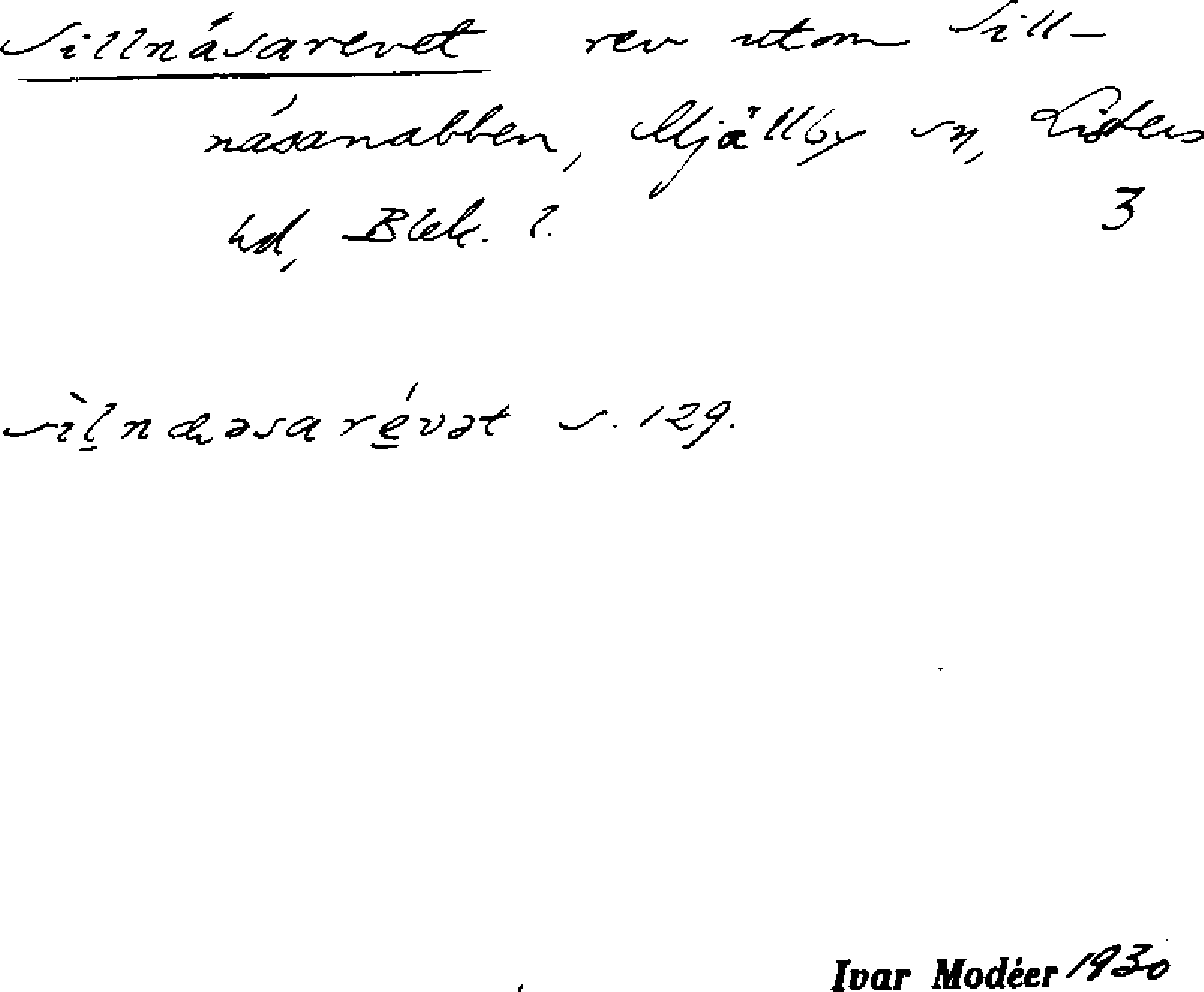 Sillnásarevet rev utom Sill-
násanabben, Mjällby sn, Listers
hd, Blek. l. 3
sìl̠nꜳəsaré̠vət s. 129.
Ivar Modéer 1930